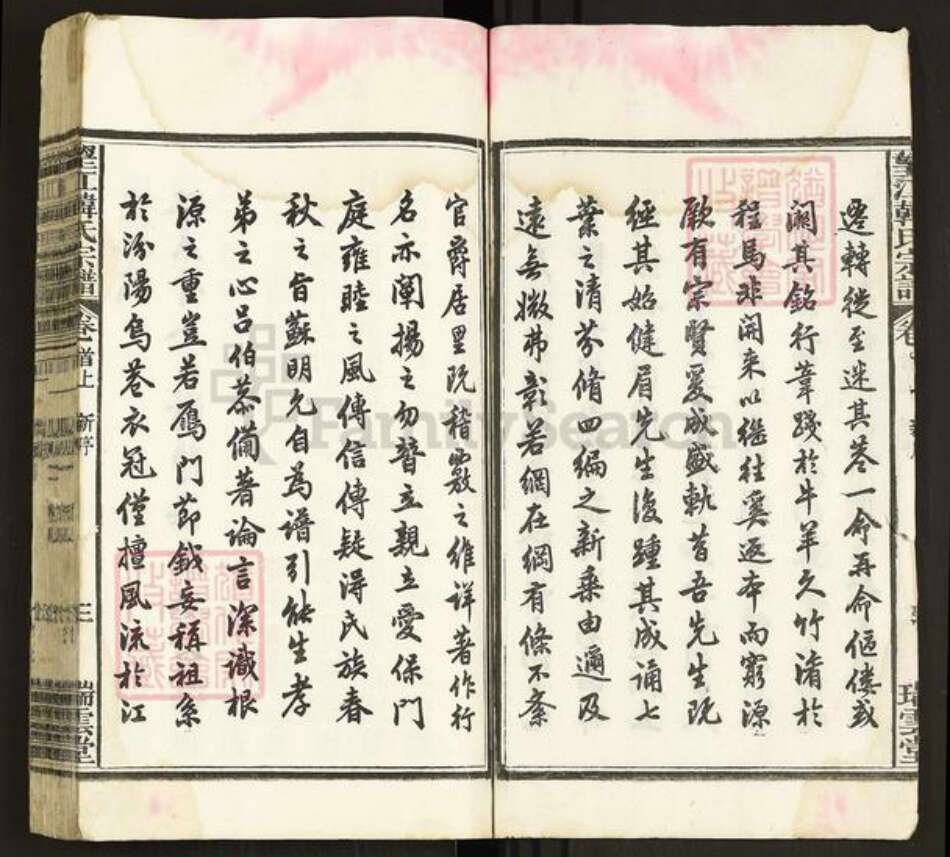 遷轉從至迷其巷一命再命傴僂或
闕其銘行葦踐於牛羊久竹濟於
程馬非開來以繼往奚返本而窮源
厥有宗賢爰成盛軌昔吾先生既
經其始健眉先生復踵其成誦七
葉之清芬脩四編之新乘由邇及
遠無微弗彰若網在綱有條不紊
官爵居里既稽覈之維詳著作行
名亦闡揚之勿替立親立愛保門
庭雍睦之風傳信傳疑得民族春
秋之旨蘇明允自為譜引能生孝
弟之心呂伯恭備著論言深識根
源之重豈若鴈門節鉞妄稱祖系
於汾陽烏巷衣冠僅擅風流於江
望江韓氏宗譜
卷首上
新序
三
瑞雲堂
FamilySearch